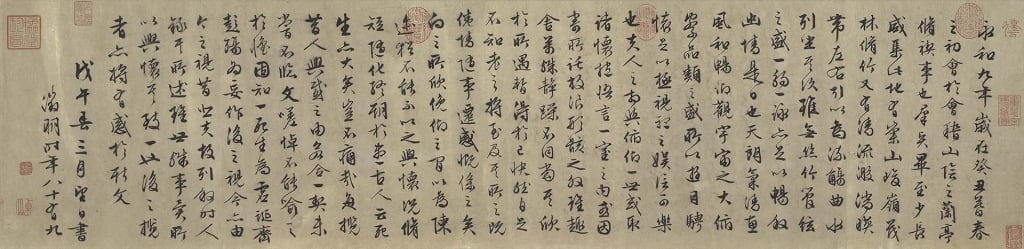 永和九年歲在癸丑暮春
之初會於會稽山陰之蘭亭
脩禊事也羣賢畢至少長
咸集此地有崇山峻領茂
林脩竹又有清流激湍暎
帶左右引以為流觴曲水
列坐其次雖無絲竹管弦
之盛一觴一詠亦足以暢敘
幽情是日也天朗氣清惠
風和暢仰觀宇宙之大俯
察品類之盛所以遊目騁
懷足以極視聽之娛信可樂
也夫人之相與俯仰一世或取
諸懷抱悟言一室之內或因
寄所託放浪形骸之外雖趣
舍萬殊靜躁不同當其欣
於所遇暫得於己快然自足
不知老之將至及其所之既
倦情隨事遷感慨係之矣
向之所欣俛仰之間以為陳
迹猶不能不以之興懷況脩
短隨化終期於盡古人云死
生亦大矣豈不痛哉每攬
昔人興感之由若合一契未
嘗不臨文嗟悼不能喻之
於懷固知一死生為虛誕齊
彭殤為妄作後之視今亦由
今之視昔悲夫故列敘時人
錄其所述雖世殊事異所
以興懷其致一也後之攬
者亦將有感於斯文
戊午春三月望日書
徵明時年八十有九